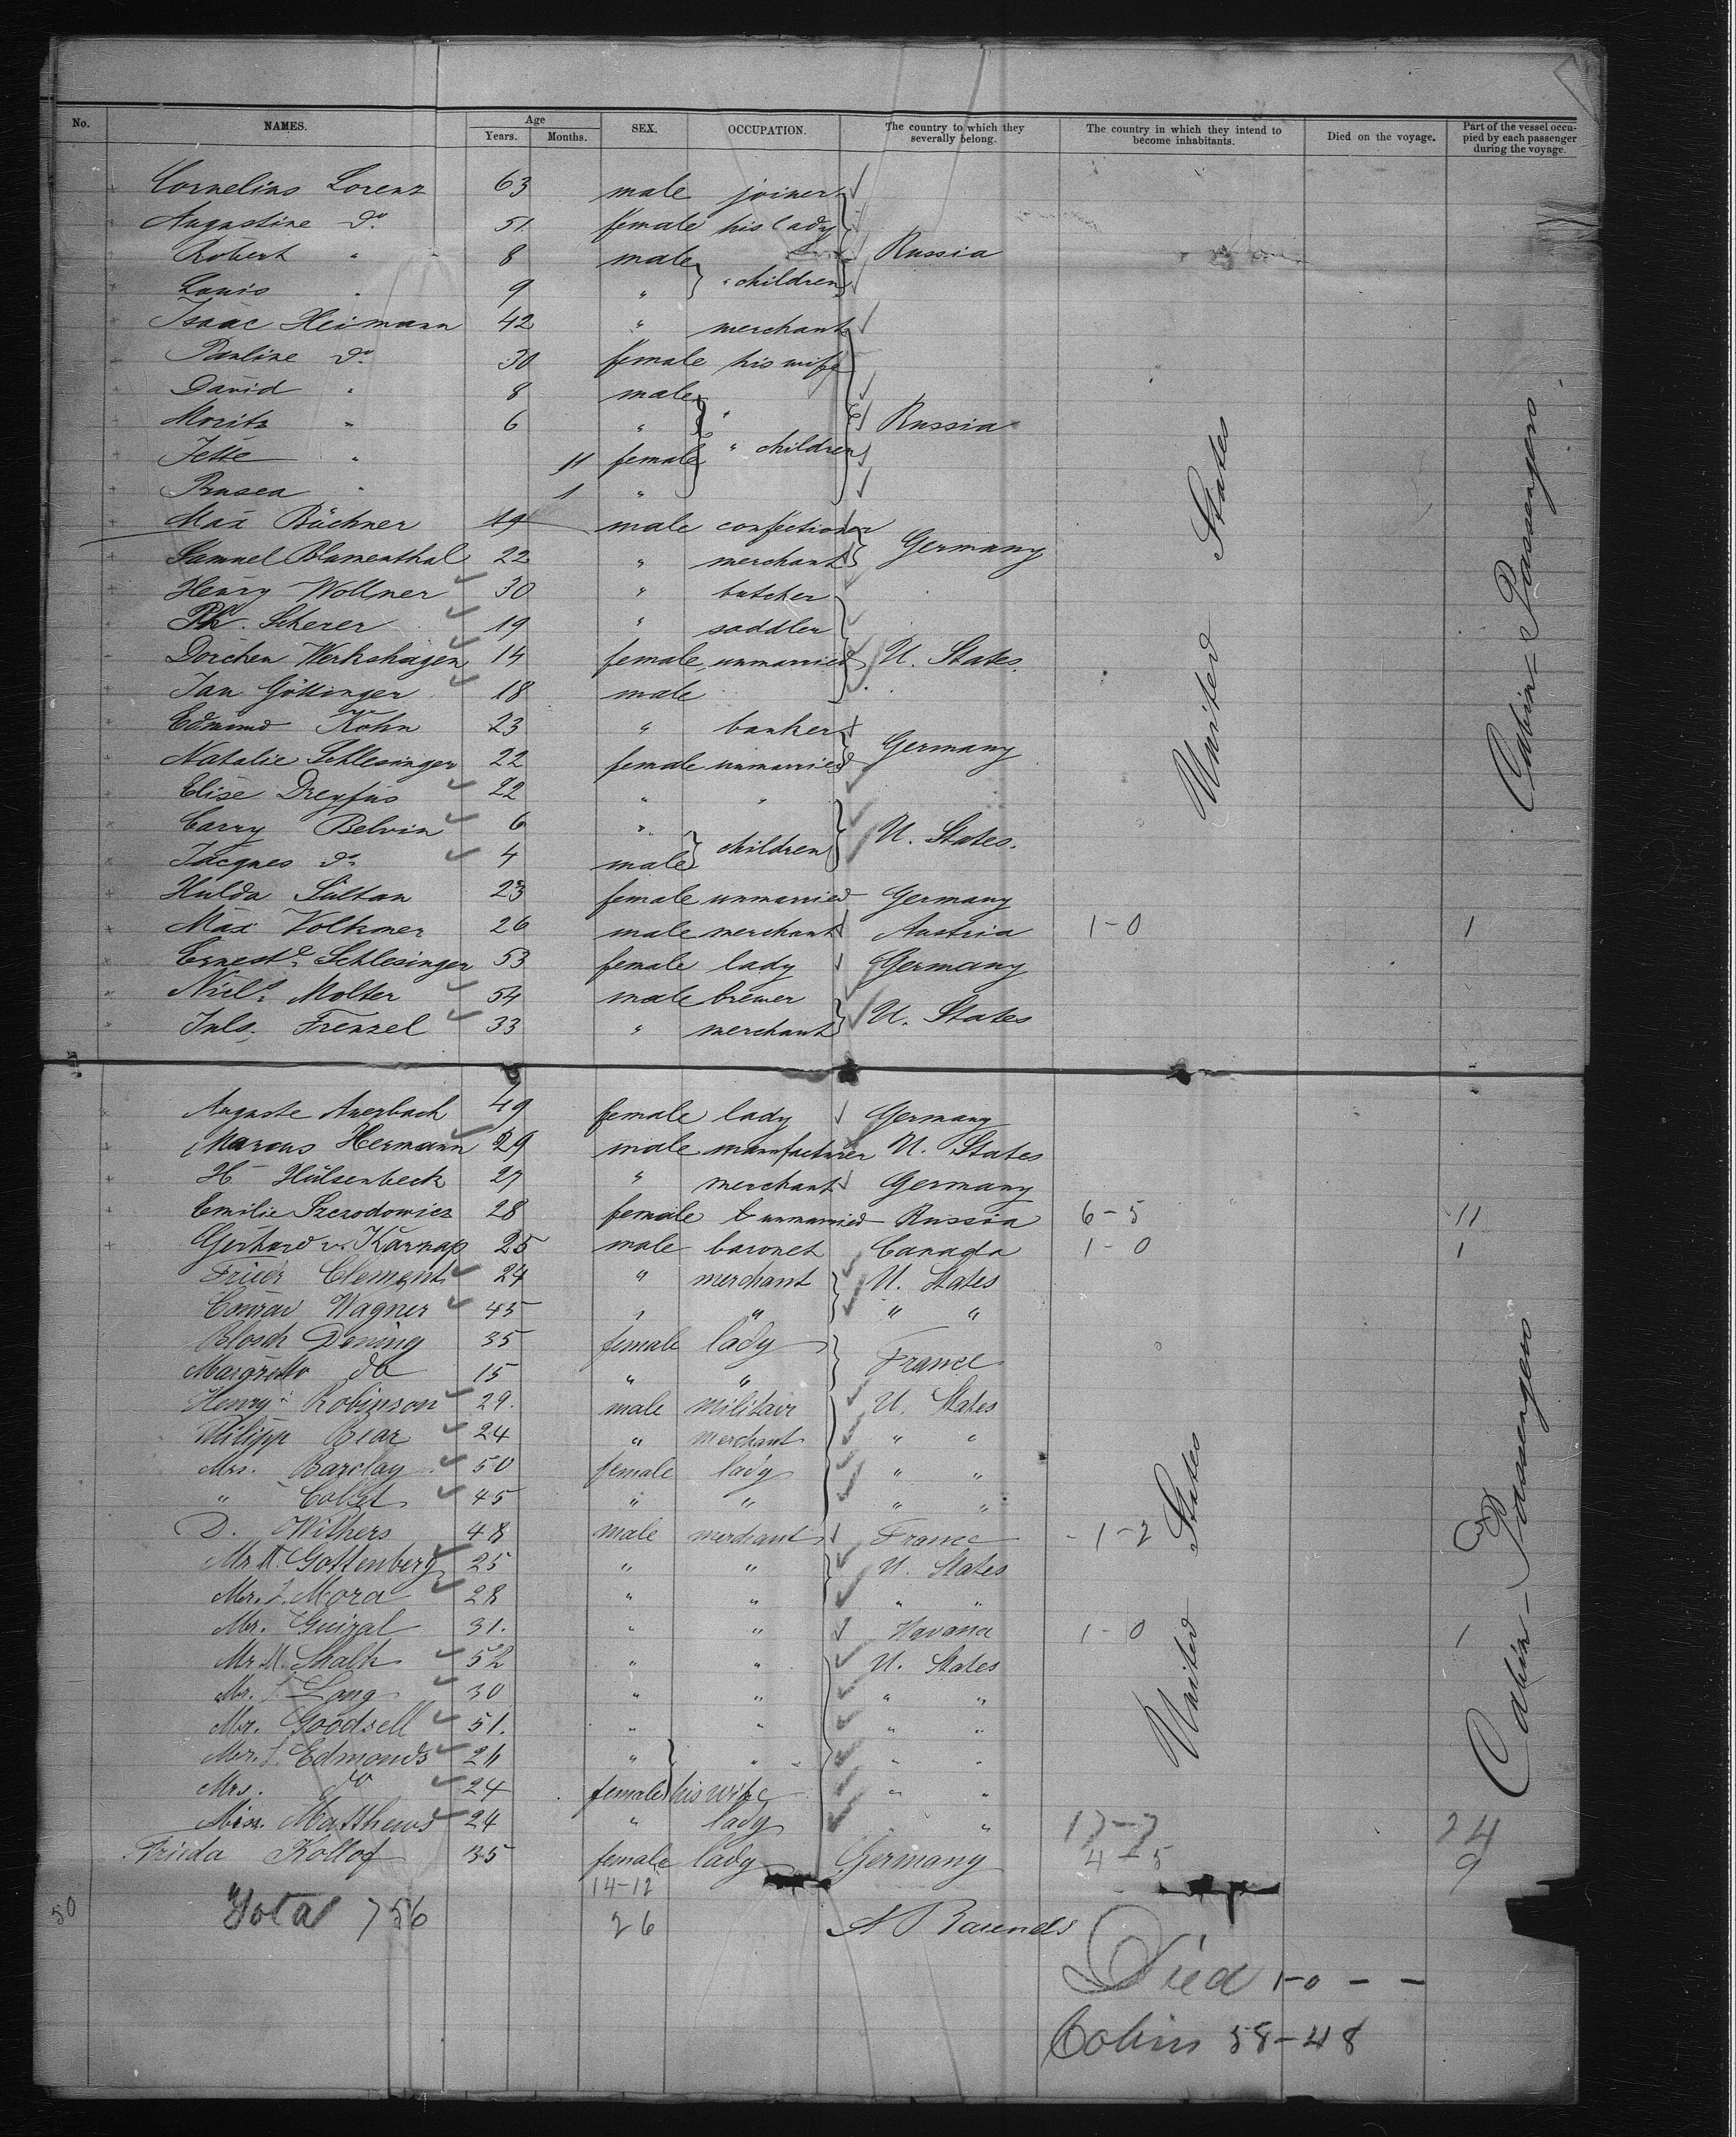 No. NAMES. Age Years. Months. SEX. OCCUPATION. The country to which they severally belong. The country in which they intend to become inhabitants. Died on the voyage. Part of the vessel occupied by each passenger during the voyage.
Cornelius Lorenz 63 male joiner
Augustine do. 51 female his lady
Robert " 8 male Russia
Louis " 9 " " children
Isaac Heimann 42 " merchant
Pauline do. 30 female his wife
David " 8 male "
Moritz " 6 " Russia
Jette " 11 female " children
" 1 "
Max Büchner 19 male confectioner
Samuel Blumenthal 22 " merchant Germany
Henry Wollner 30 " butcher
Ph. Scherer 19 " saddler
Dorchen Werkshagen 14 female unmarried U. States.
Jan Göttinger 18 male
Edmund Kohn 23 " banker
Natalie Schlesinger 22 female unmarried Germany
Elise Dreyfus 22 " "
Carry Belvin 6 "
Jacques do. 4 male children U. States.
Hulda Sultan 23 female unmarried Germany
Max Volkmer 26 male merchant Austria 1-0 1
Erneste. Schlesinger 53 female lady Germany
Nicls. Molter 54 male brewer
Juls. Frenzel 33 " merchant U. States
United States
Cabin-Passengers
Auguste Auerbach 49 female lady Germany
Marcus Hermann 29 male manufacturer U. States
H. Hülsenbeck 27 " merchant Germany
Emilie Szerodowicz 28 female unmarried Russia 6-5 11
Gerhard v. Karnap 25 male baronet Canada 1-0 1
Friedr Clement 24 " merchant U. States
Conrad Wagner 45 " " " "
Blosch Dening 35 female lady
Margretto do 15 " " France
Henry Robinson 29. male militair U. States
Philipp Bear 24 " merchant " "
Mrs. Barclay 50 female lady " "
" 45 " " " "
D. Withers 48 male merchant France 1-2 3
Mr. M. Gottenberg 25 " " U. States
Mr. J. Mora 28 " " " "
Mr. Guiral 31. " " Havana 1-0 1
Mr M. Shalk 52 " " U. States
Mr. J. Lang 30 " " " "
Mr. Goodsell 51. " " " "
Mr. J. Edmonds 26 " " " "
Mrs. do 24 female his wife " "
Miss. Matthews 24 " lady "
17-7 24
Frieda Kollof 35 female lady Germany 4-5 9
United States
Cabin-Passengers
14-12
50 Total 756 26 A Barends
Died 1-0 - -
Cabin 58-48